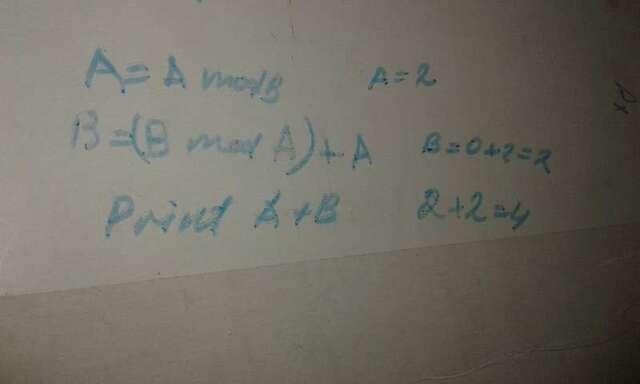 A = A mod B A = 2
B = (B mod A) + A B = 0 + 2 = 2
Print A + B 2 + 2 = 4